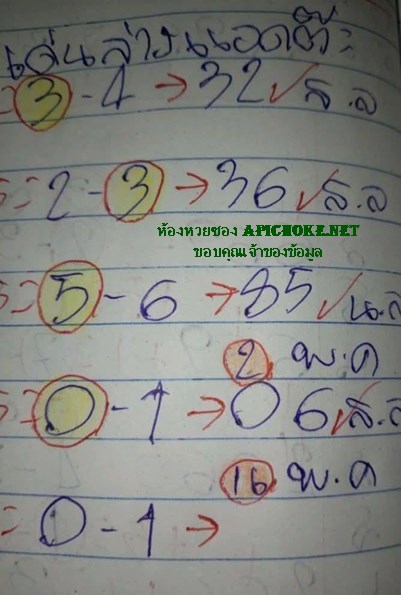 เด่นล่างนอดต๊ะ
= 3 - 4 → 32 ✓ ส.ล
= 2 - 3 → 36 ✓ ส.ล
ห้องหวยซอง APICHOKE.NET
ขอบคุณเจ้าของข้อมูล
= 5 - 6 → 85 ✓ น.ส
2 พ.ค
= 0 - 1 → 06 ✓ ส.ล
16 พ.ค
= 0 - 1 →